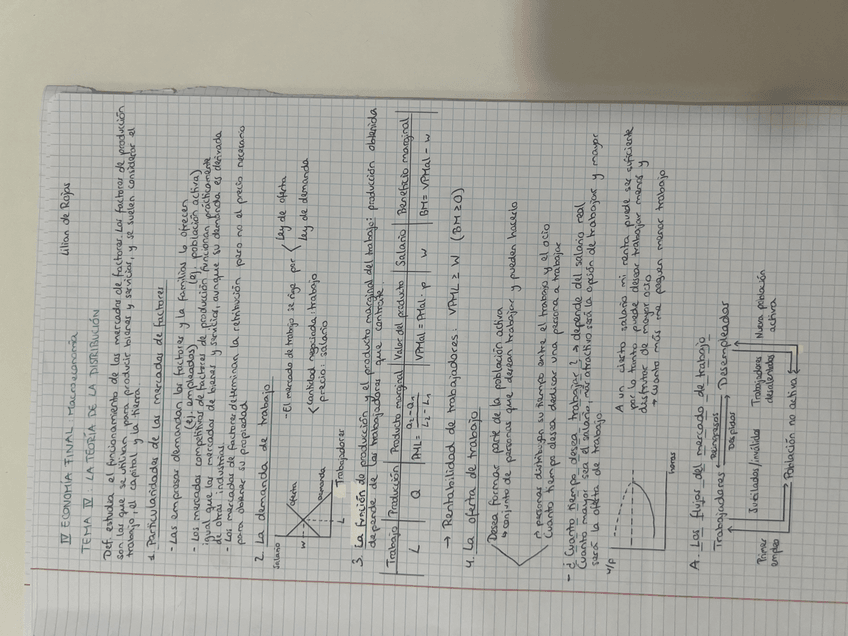 IV ECONOMIA FINAL Macroeconomía Lilian de Rojas
TEMA IV LA TEORÍA DE LA DISTRIBUCIÓN
Def. estudia el funcionamiento de los mercados de factores. Los factores de producción
son los que se utilizan para producir bienes y servicios, y se suelen considerar el
trabajo, el capital y la tierra.
1. Particularidades de los mercados de factores
- Las empresas demandan los factores y la familias lo ofrecen
(ej. empleados) (ej. población activa)
- Los mercados competitivos de factores de producción funcionan prácticamente
igual que los mercados de bienes y servicios, aunque su demanda es derivada
de otras industrial
- Los mercados de factores determinan la retribución pero no el precio necesario
para obtener su propiedad
2. La demanda de trabajo
Salario
oferta
demanda
W
L
Trabajadores
- El mercado de trabajo se rige por
Ley de oferta
Ley de demanda
cantidad negociada: trabajo
precio: salario
3. La función de producción y el producto marginal del trabajo: producción obtenida
depende de los trabajadores que contrate.
Trabajo | Producción | Producto marginal | Valor del producto | Salario | Beneficio marginal
L | Q | PML = | VPMal = PMal · p | W | BM = VPMal - W
→ Rentabilidad de trabajadores: VPML ≥ W (BM ≥ 0)
4. La oferta de trabajo
Desea formar parte de la población activa
↳ conjunto de personas que desean trabajar y pueden hacerlo
personas distribuyen su tiempo entre el trabajo y el ocio
Cuanto tiempo desea dedicar una persona a trabajar
- ¿Cuanto tiempo desea trabajar? → depende del salario real
Cuanto mayor sea el salario, más atractivo será la opción de trabajar y mayor
será la oferta de trabajo
W/P
horas
A un cierto salario mi renta puede ser suficiente
por lo tanto puede desear trabajar menos y
disfrutar de mayor ocio
* cuanto más me paguen menor trabajo
A. Los flujos del mercado de trabajo
Trabajadores
Reingresos
Despidos
Desempleados
Primer
empleo
Jubilados/inválidos
Trabajadores
desalentados
Nueva población
activa
Población no activa